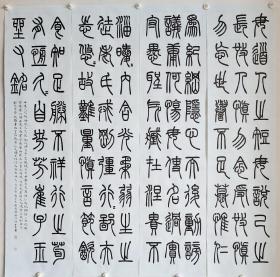 毋道人之短毋說己之
長施人慎勿念受施慎
勿忘世譽不足慕唯仁
爲紀綱隱心而後動謗
議庸何傷毋使名過實
守愚聖所臧在涅貴不
緇曖曖內含光柔弱生之
徒老氏誡剛彊行行鄙夫
志悠悠故難量慎言節飲
食知足勝不祥行之苟
有恆久久自芬芳崔子玉
座右銘